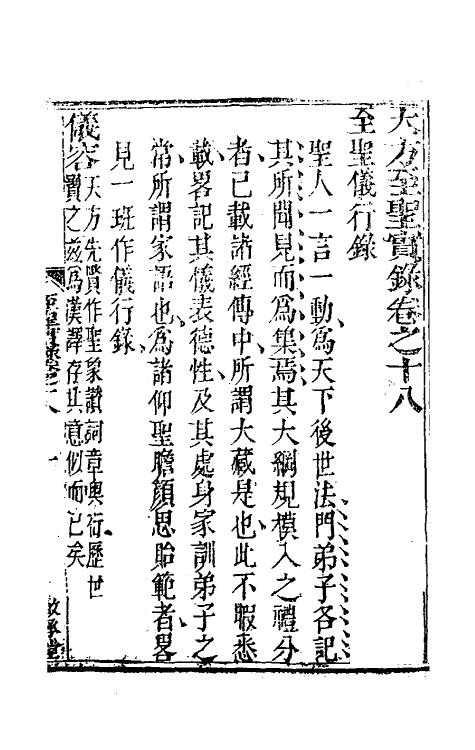 天方至聖實錄卷之十八
至聖儀行錄
聖人一言一動爲天下後世法門弟子各記
其所聞見而爲集焉其大綱規模入之禮分
者已載諸經傳中所謂大藏是也此不暇悉
載畧記其儀表德性及其處身家訓弟子之
常所謂家語也爲諸仰聖瞻顏思貽範者畧
見一班作儀行錄
儀容
天方先賢作聖象讚詞章輿衍歷世
寶之茲爲漢譯存其意似而已矣
至聖實錄卷之十八
一